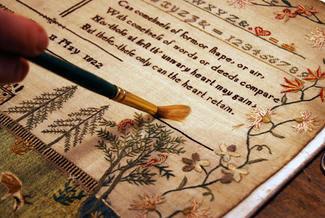 Can comeliness of form or shape, or air,
With comeliness of words or deeds compare
No those at first th' unwary heart may gain,
But these these only can the heart, retain.
May 1822